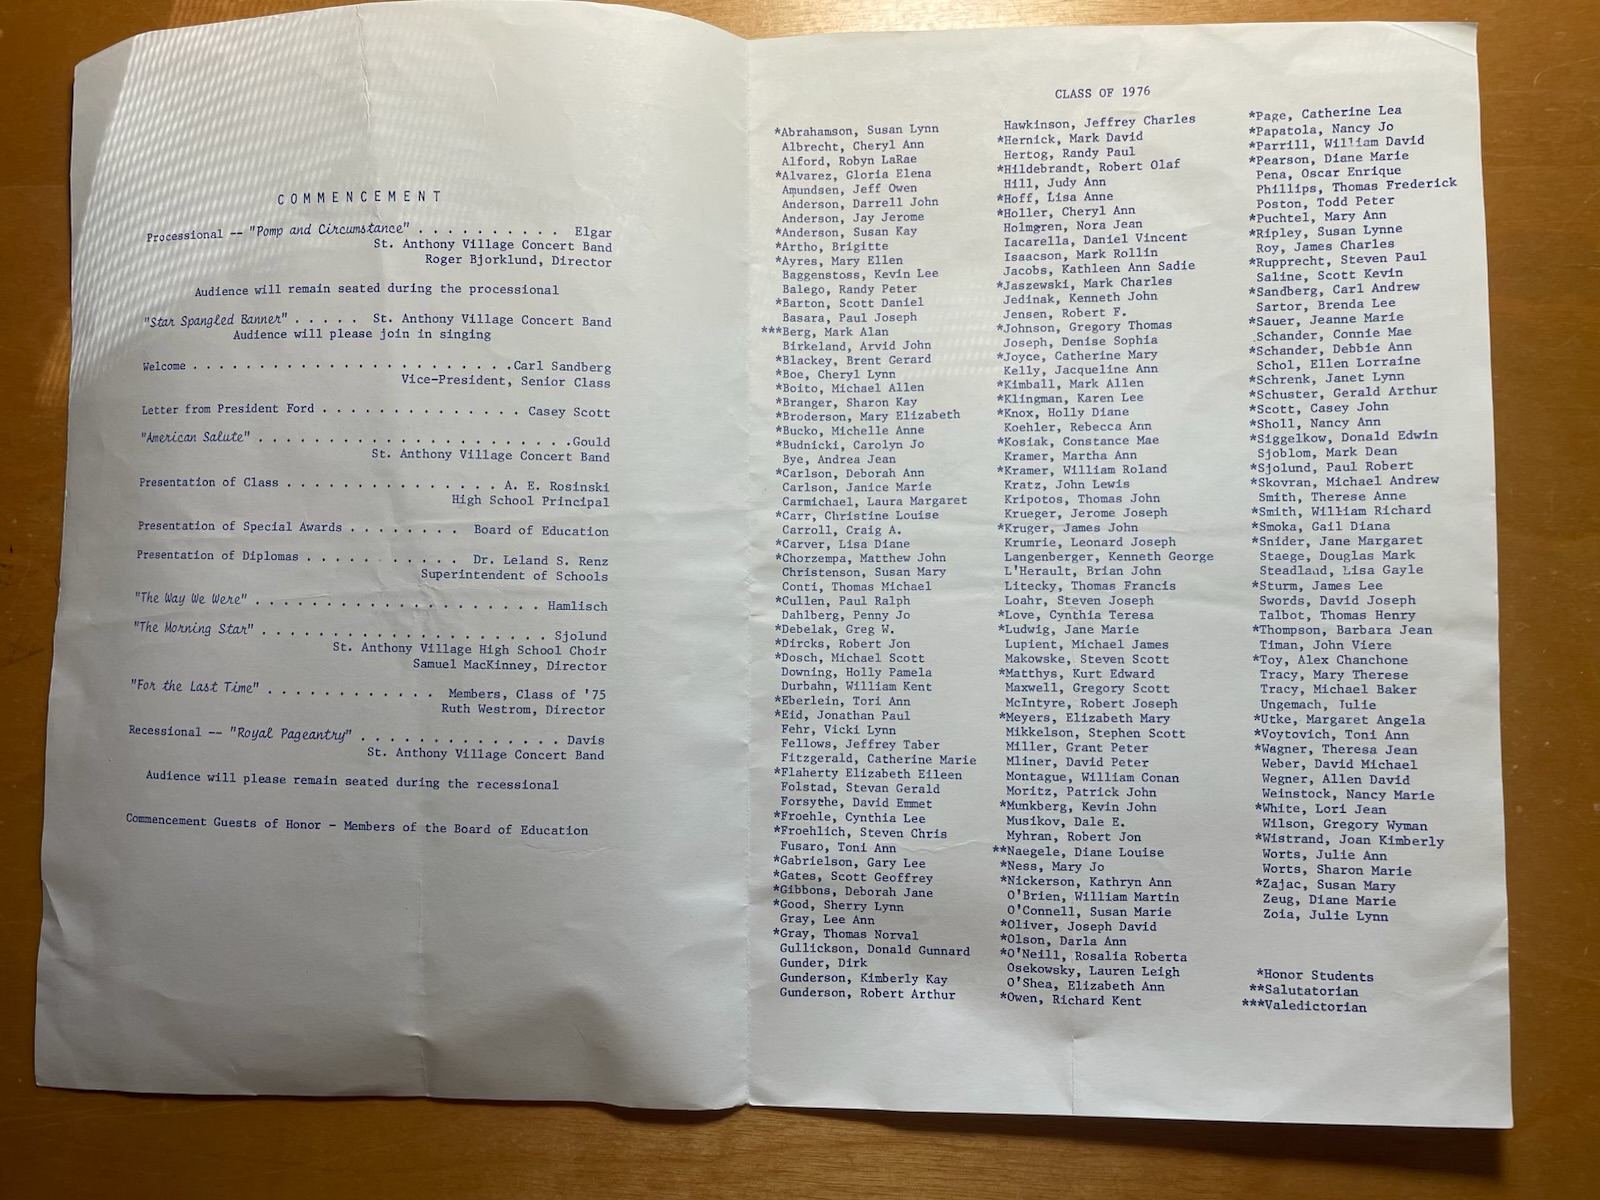 COMMENCEMENT
Processional -- "Pomp and Circumstance" . . . . . . . . . . Elgar
St. Anthony Village Concert Band
Roger Bjorklund, Director
Audience will remain seated during the processional
"Star Spangled Banner" . . . . . St. Anthony Village Concert Band
Audience will please join in singing
Welcome . . . . . . . . . . . . . . . . . . . . . . .Carl Sandberg
Vice-President, Senior Class
Letter from President Ford . . . . . . . . . . . . . . Casey Scott
"American Salute" . . . . . . . . . . . . . . . . . . . . . . .Gould
St. Anthony Village Concert Band
Presentation of Class . . . . . . . . . . . . . . . A. E. Rosinski
High School Principal
Presentation of Special Awards . . . . . . . . Board of Education
Presentation of Diplomas . . . . . . . . . . . Dr. Leland S. Renz
Superintendent of Schools
"The Way We Were" . . . . . . . . . . . . . . . . . . . . Hamlisch
"The Morning Star" . . . . . . . . . . . . . . . . . . . . Sjolund
St. Anthony Village High School Choir
Samuel MacKinney, Director
"For the Last Time" . . . . . . . . . . . . Members, Class of '75
Ruth Westrom, Director
Recessional -- "Royal Pageantry" . . . . . . . . . . . . . . Davis
St. Anthony Village Concert Band
Audience will please remain seated during the recessional
Commencement Guests of Honor - Members of the Board of Education
CLASS OF 1976
*Abrahamson, Susan Lynn
Albrecht, Cheryl Ann
Alford, Robyn LaRae
*Alvarez, Gloria Elena
Amundsen, Jeff Owen
Anderson, Darrell John
Anderson, Jay Jerome
*Anderson, Susan Kay
*Artho, Brigitte
*Ayres, Mary Ellen
Baggenstoss, Kevin Lee
Balego, Randy Peter
*Barton, Scott Daniel
Basara, Paul Joseph
***Berg, Mark Alan
Birkeland, Arvid John
*Blackey, Brent Gerard
*Boe, Cheryl Lynn
*Boito, Michael Allen
*Branger, Sharon Kay
*Broderson, Mary Elizabeth
*Bucko, Michelle Anne
*Budnicki, Carolyn Jo
Bye, Andrea Jean
*Carlson, Deborah Ann
Carlson, Janice Marie
Carmichael, Laura Margaret
*Carr, Christine Louise
Carroll, Craig A.
*Carver, Lisa Diane
*Chorzempa, Matthew John
Christenson, Susan Mary
Conti, Thomas Michael
*Cullen, Paul Ralph
Dahlberg, Penny Jo
*Debelak, Greg W.
*Dircks, Robert Jon
*Dosch, Michael Scott
Downing, Holly Pamela
Durbahn, William Kent
*Eberlein, Tori Ann
*Eid, Jonathan Paul
Fehr, Vicki Lynn
Fellows, Jeffrey Taber
Fitzgerald, Catherine Marie
*Flaherty Elizabeth Eileen
Folstad, Stevan Gerald
Forsythe, David Emmet
*Froehle, Cynthia Lee
*Froehlich, Steven Chris
Fusaro, Toni Ann
*Gabrielson, Gary Lee
*Gates, Scott Geoffrey
*Gibbons, Deborah Jane
*Good, Sherry Lynn
Gray, Lee Ann
*Gray, Thomas Norval
Gullickson, Donald Gunnard
Gunder, Dirk
Gunderson, Kimberly Kay
Gunderson, Robert Arthur
Hawkinson, Jeffrey Charles
*Hernick, Mark David
Hertog, Randy Paul
*Hildebrandt, Robert Olaf
Hill, Judy Ann
*Hoff, Lisa Anne
*Holler, Cheryl Ann
Holmgren, Nora Jean
Iacarella, Daniel Vincent
Isaacson, Mark Rollin
Jacobs, Kathleen Ann Sadie
*Jaszewski, Mark Charles
Jedinak, Kenneth John
Jensen, Robert F.
*Johnson, Gregory Thomas
Joseph, Denise Sophia
*Joyce, Catherine Mary
Kelly, Jacqueline Ann
*Kimball, Mark Allen
*Klingman, Karen Lee
*Knox, Holly Diane
Koehler, Rebecca Ann
*Kosiak, Constance Mae
Kramer, Martha Ann
*Kramer, William Roland
Kratz, John Lewis
Kripotos, Thomas John
Krueger, Jerome Joseph
*Kruger, James John
Krumrie, Leonard Joseph
Langenberger, Kenneth George
L'Herault, Brian John
Litecky, Thomas Francis
Loahr, Steven Joseph
*Love, Cynthia Teresa
*Ludwig, Jane Marie
Lupient, Michael James
Makowske, Steven Scott
*Matthys, Kurt Edward
Maxwell, Gregory Scott
McIntyre, Robert Joseph
*Meyers, Elizabeth Mary
Mikkelson, Stephen Scott
Miller, Grant Peter
Mliner, David Peter
Montague, William Conan
Moritz, Patrick John
*Munkberg, Kevin John
Musikov, Dale E.
Myhran, Robert Jon
**Naegele, Diane Louise
*Ness, Mary Jo
*Nickerson, Kathryn Ann
O'Brien, William Martin
O'Connell, Susan Marie
*Oliver, Joseph David
*Olson, Darla Ann
*O'Neill, Rosalia Roberta
Osekowsky, Lauren Leigh
O'Shea, Elizabeth Ann
*Owen, Richard Kent
*Page, Catherine Lea
*Papatola, Nancy Jo
*Parrill, William David
*Pearson, Diane Marie
Pena, Oscar Enrique
Phillips, Thomas Frederick
Poston, Todd Peter
*Puchtel, Mary Ann
*Ripley, Susan Lynne
Roy, James Charles
*Rupprecht, Steven Paul
Saline, Scott Kevin
*Sandberg, Carl Andrew
Sartor, Brenda Lee
*Sauer, Jeanne Marie
Schander, Connie Mae
*Schander, Debbie Ann
Schol, Ellen Lorraine
*Schrenk, Janet Lynn
*Schuster, Gerald Arthur
*Scott, Casey John
*Sholl, Nancy Ann
*Siggelkow, Donald Edwin
Sjoblom, Mark Dean
*Sjolund, Paul Robert
*Skovran, Michael Andrew
Smith, Therese Anne
*Smith, William Richard
*Smoka, Gail Diana
*Snider, Jane Margaret
Staege, Douglas Mark
Steadland, Lisa Gayle
*Sturm, James Lee
Swords, David Joseph
Talbot, Thomas Henry
*Thompson, Barbara Jean
Timan, John Viere
*Toy, Alex Chanchone
Tracy, Mary Therese
Tracy, Michael Baker
Ungemach, Julie
*Utke, Margaret Angela
*Voytovich, Toni Ann
*Wagner, Theresa Jean
Weber, David Michael
Wegner, Allen David
Weinstock, Nancy Marie
*White, Lori Jean
Wilson, Gregory Wyman
*Wistrand, Joan Kimberly
Worts, Julie Ann
Worts, Sharon Marie
*Zajac, Susan Mary
Zeug, Diane Marie
Zoia, Julie Lynn
*Honor Students
**Salutatorian
***Valedictorian